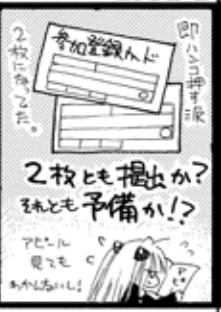 即ハンコ押す涙
参加登録カード
2枚になってた。
2枚とも提出か?
それとも予備か!?
アピール
見ても
わかんないし!